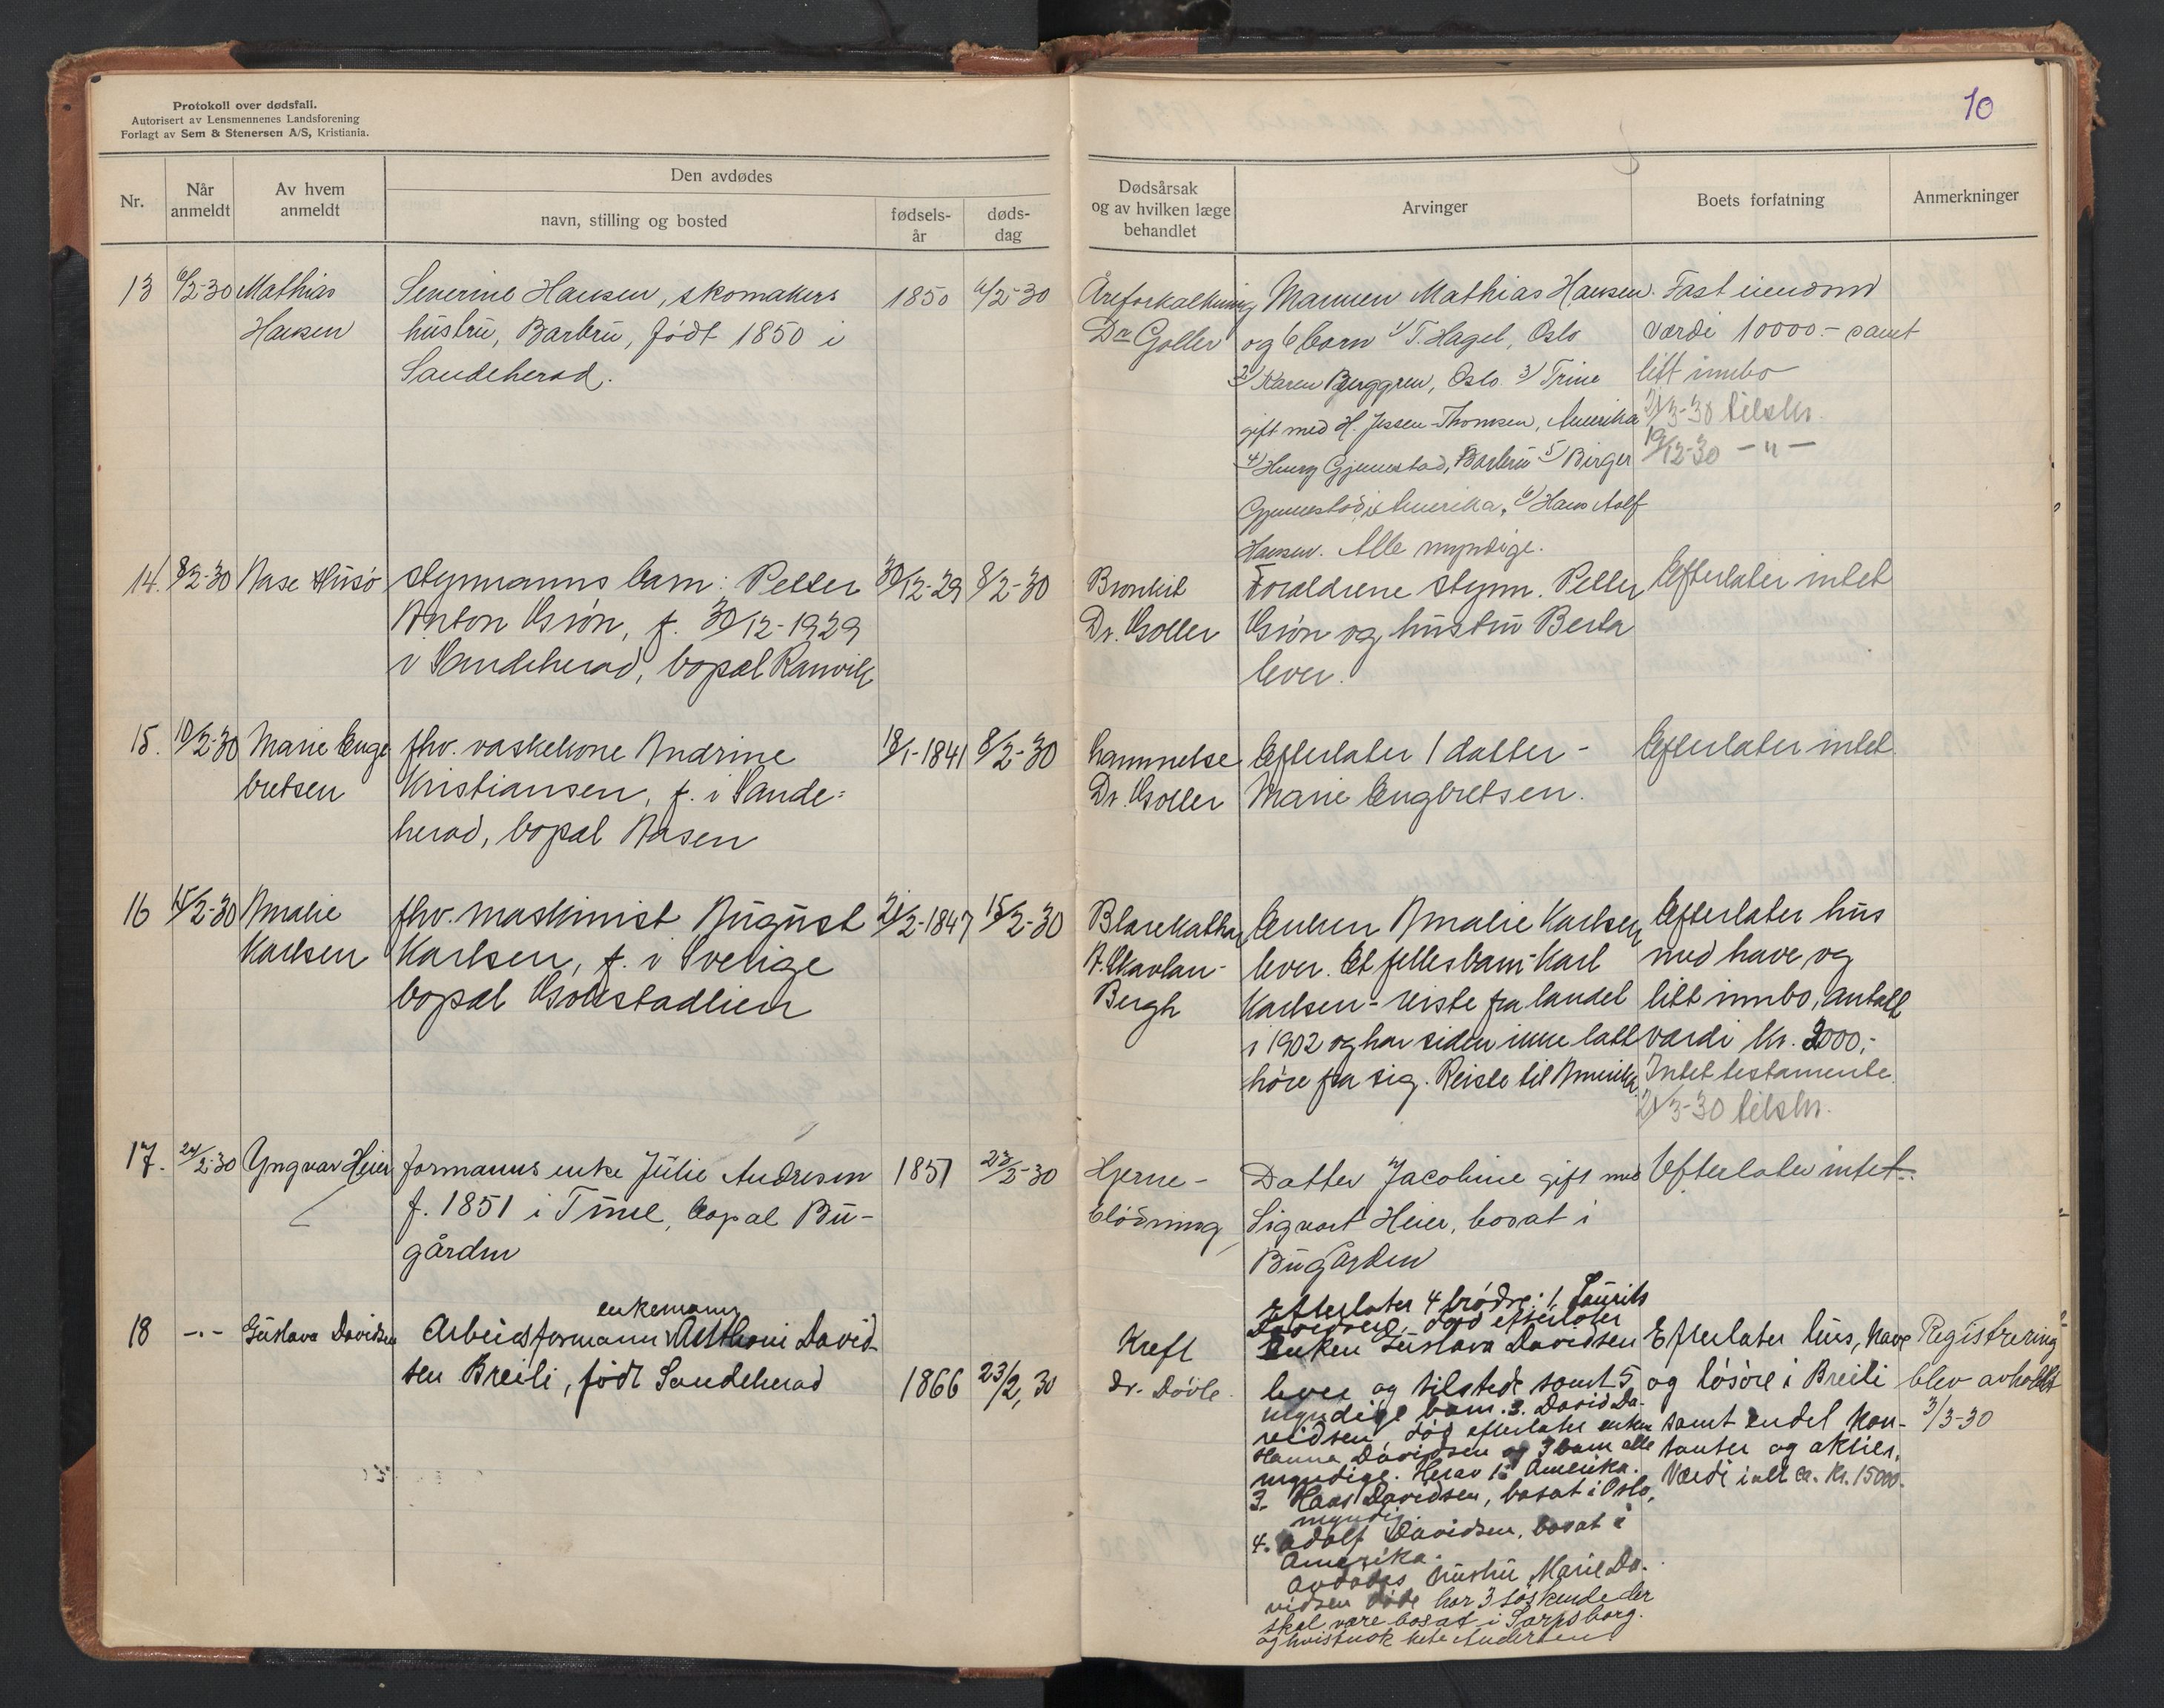 Protokoll over dødsfall.
Autorisert av Lensmennenes Landsforening
Forlagt av Sem & Stenersen A/S, Kristiania.
10
Nr.
Når anmeldt
Av hvem anmeldt
Den avdødes
navn, stilling og bosted
fødsels-år
døds-dag
Dødsårsak og av hvilken læge behandlet
Arvinger
Boets forfatning
Anmerkninger
13 6/2-30 Mathias
Hansen
Severine Hansen, skomakers
hustru, Barbru, født 1850 i
Sandeherad.
1850 4/2-30
Åreforkalkning
Dr Goller
Mannen Mathias Hansen
og 6 barn 1/ T. Hagel, Oslo
2/ Karen Berggren, Oslo 3/ Trine
gift med H. Jessen-Thomsen, Amerika
4/ Henry Gjennestad, Barbru 5/ Birger
Gjennestad i Amerika, 6/ Hans Adolf
Hansen. Alle myndige.
Fast eiendom
værdi 10000.- samt
litt innbo
21/3-30 tilskr.
19/12-30 -"-
14. 8/2-30 Aase Husø
styrmanns barn: Petter
Anton Grøn, f. 30/12-1929
i Sandeherad, bopæl Ranvik
30/12-29 8/2-30
Bronkit
Dr. Goller
Foreldrene styrm. Petter
Grøn og hustru Berta
lever.
Efterlater intet
15. 10/2-30 Marie Enge
bretsen
fhv. vaskekone Andrine
Kristiansen, f. i Sande-
herad, bopæl Aasen
18/1-1841 8/2-30
Gammelse
Dr. Goller
Efterlater 1 datter -
Marie Engbretsen.
Efterlater intet.
16 15/2-30 Amalie
Karlsen
fhv. maskinist August
Karlsen, f. i Sverige
bopæl Gokstadlien
21/2-1847 15/2-30
Blærekathar
Bergh
Enken Amalie Karlsen
lever. Et fellesbarn - Karl
Karlsen - reiste fra landet
i 1902 og har siden ikke latt
høre fra sig. Reiste til Amerika
Efterlater hus
med have og
litt innbo, antatt
værdi kr. 2000,-
Intet testamente.
21/3-30 tilskr.
17. 24/2-30 Yngvar Heier
formanns enke Julie Andresen
f. 1851 i bopæl Bu-
gården
1851 23/2-30
Hjerne-
blødning
Datter Jacobine gift med
Sigvart Heier, bosat i
Bugården
Efterlater intet.
18 -"- Gustava Davidsen
enkemann
Arbeidsformann Anthoni David-
sen Breili, født Sandeherad
1866 23/2, 30
Kreft
Dr.
Efterlater 4 brødre: 1, Laurits
Davidsen, død efterlater
Enken Gustava Davidsen
lever og tilstede samt 5
myndige barn. 2. David Da-
vidsen, død efterlater enken
Hanna Davidsen og 3 barn alle
myndige. Herav 1 i Amerika.
3. Hans Davidsen, bosat i Oslo,
myndig.
4. Adolf Davidsen, bosat i
Amerika.
Avdødes hustru Marie Da-
vidsen døde har 3 søskende der
skal være bosat i Sarpsborg.
og hvistnok hete Andersen
Efterlater hus, have
og løsøre i Breili
samt endel kon-
tanter og aktier.
Værdi ialt ca. Kr. 15000.
Registrering
blev avholdt
3/3-30